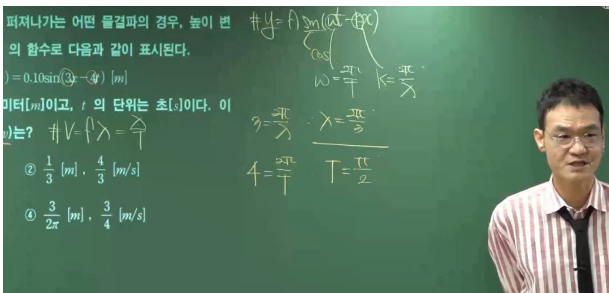 퍼져나가는 어떤 물결파의 경우, 높이 변
의 함수로 다음과 같이 표시된다.
) = 0.10sin(3x - 4t) [m]
미터[m]이고, t 의 단위는 초[s]이다. 이
v)는? #V=fλ=λ/T
② 1/3 [m], 4/3 [m/s]
④ 3/2π [m], 3/4 [m/s]
#y=A sin(ωt-kx)
cos
ω=2π/T K=2π/λ
3=2π/λ ∴ λ=2π/3
4=2π/T T=π/2